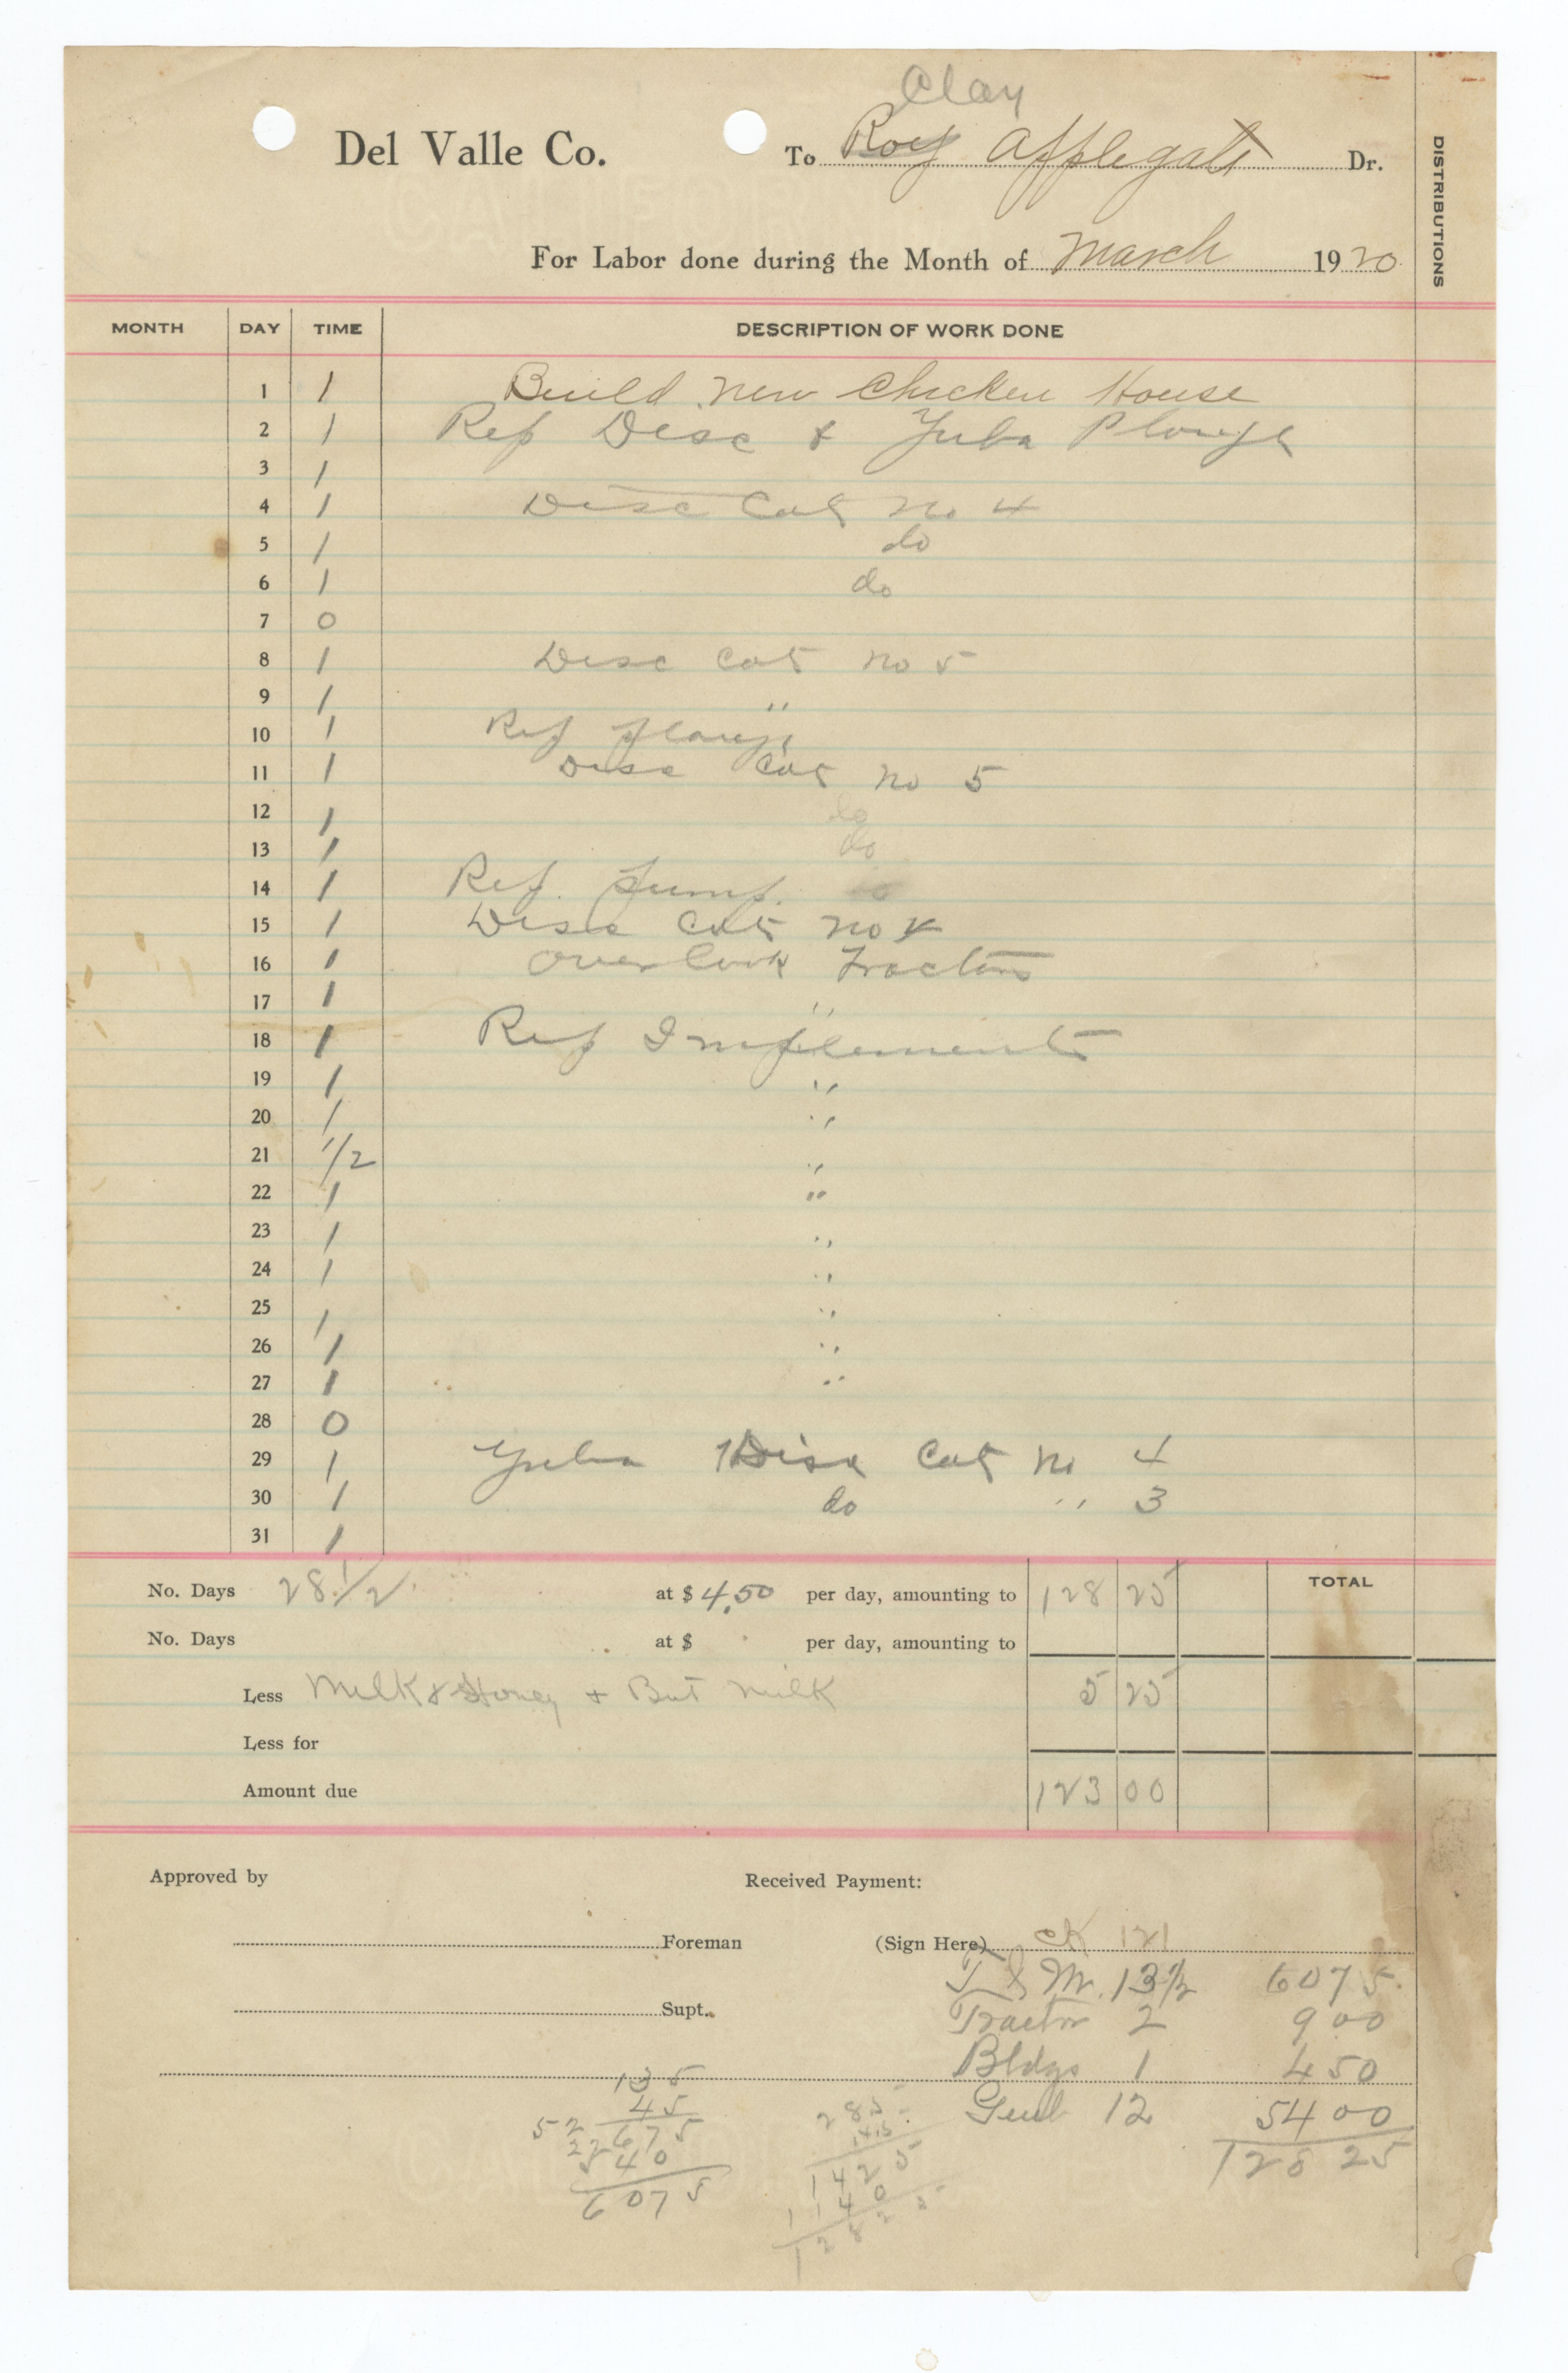 Clay
Del Valle Co. To Roy Applegate Dr.
DISTRIBUTIONS
For Labor done during the Month of March 1920
MONTH DAY TIME DESCRIPTION OF WORK DONE
1 1 Build new Chicken House
2 1 Rep Disc & Yuba Plough
3 1
4 1 Disc Cat No 4
5 1 do
6 1 do
7 0
8 1 Disc Cat No 5
9 1 "
10 1 Rep plough
11 1 Disc Cat No 5
12 1 do
13 1 do
14 1 Rep pump.
15 1 Disc Cat No 4
16 1 Over look Tractors
17 1 "
18 1 Rep Implements
19 1 "
20 1 "
21 1/2 "
22 1 "
23 1 "
24 1 "
25 1 "
26 1 "
27 1 "
28 0
29 1 Yuba Disc Cat No 4
30 1 do " 3
31 1
No. Days 28 1/2 at $ 4.50 per day, amounting to 128 25 TOTAL
No. Days at $ per day, amounting to
Less Milk & Honey + But Milk 5 25
Less for
Amount due 123 00
Approved by Received Payment:
Foreman (Sign Here) cK 121
T & M. 13 1/2 60 75.
Supt. Tractor 2 9 00
Bldgs 1 4 50
Genl 12 54 00
128 25
135
45
52 675
22 540
6075
285
1425
1140
12825